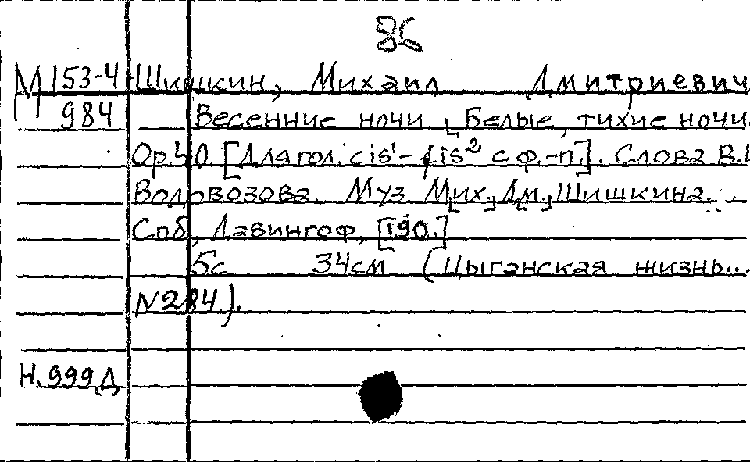 86
М 153-4 Шишкин, Михаил Дмитриевич
984 Весенние ночи [Белые, тихие ночи
Op.40. [Для гол. cis¹-fis² с ф.-п.]. Слова В.
Водовозова. Муз Мих. Дм. Шишкина.
Спб, Давингоф, [190.]
5с 34см (Цыганская жизнь...
N284).
Н.999Д